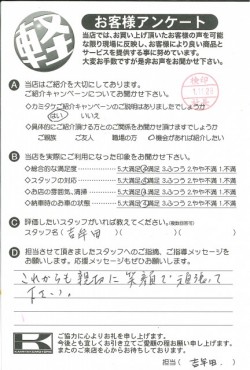 軽
お客様アンケート
当店では、お買い上げ頂いたお客様の声を可能
な限り現場に反映し、お客様により良い商品と
サービスを提供する事に努めています。
大変お手数ですが是非お声をお聞かせ下さい。
検印
A 当店はご紹介を大切にしております。
ご紹介キャンペーンについてお聞かせ下さい。
◇カミタケご紹介キャンペーンのご説明はありましたでしょうか
はい いいえ
◇具体的にご紹介頂ける方とのご関係をお聞かせ頂けますでしょうか
ご親族 ご友人 職場の方 機会があれば紹介したい
B 当店を実際にご利用になった印象をお聞かせ下さい。
◇総合的な満足度 5.大満足 4.満足 3.ふつう 2.やや不満 1.不満
◇スタッフの対応 5.大満足 4.満足 3.ふつう 2.やや不満 1.不満
◇お店の雰囲気、清掃 5.大満足 4.満足 3.ふつう 2.やや不満 1.不満
◇納車時のお車の状態 5.大満足 4.満足 3.ふつう 2.やや不満 1.不満
C 評価したいスタッフがいれば教えてください。(複数回答可)
スタッフ名( 吉年田 )( )( )
D 担当させて頂きましたスタッフへのご指摘、ご指導メッセージを
お願いします。応援メッセージもぜひお願い致します。
これからも親切に笑顔で頑張って
下さい。
K
ご協力に心よりお礼を申し上げます。
今後とも宜しくお引き立てご愛顧の程お願い申し上げます。
またのご来店を心からお待ちしております。
担当( 吉年田. )